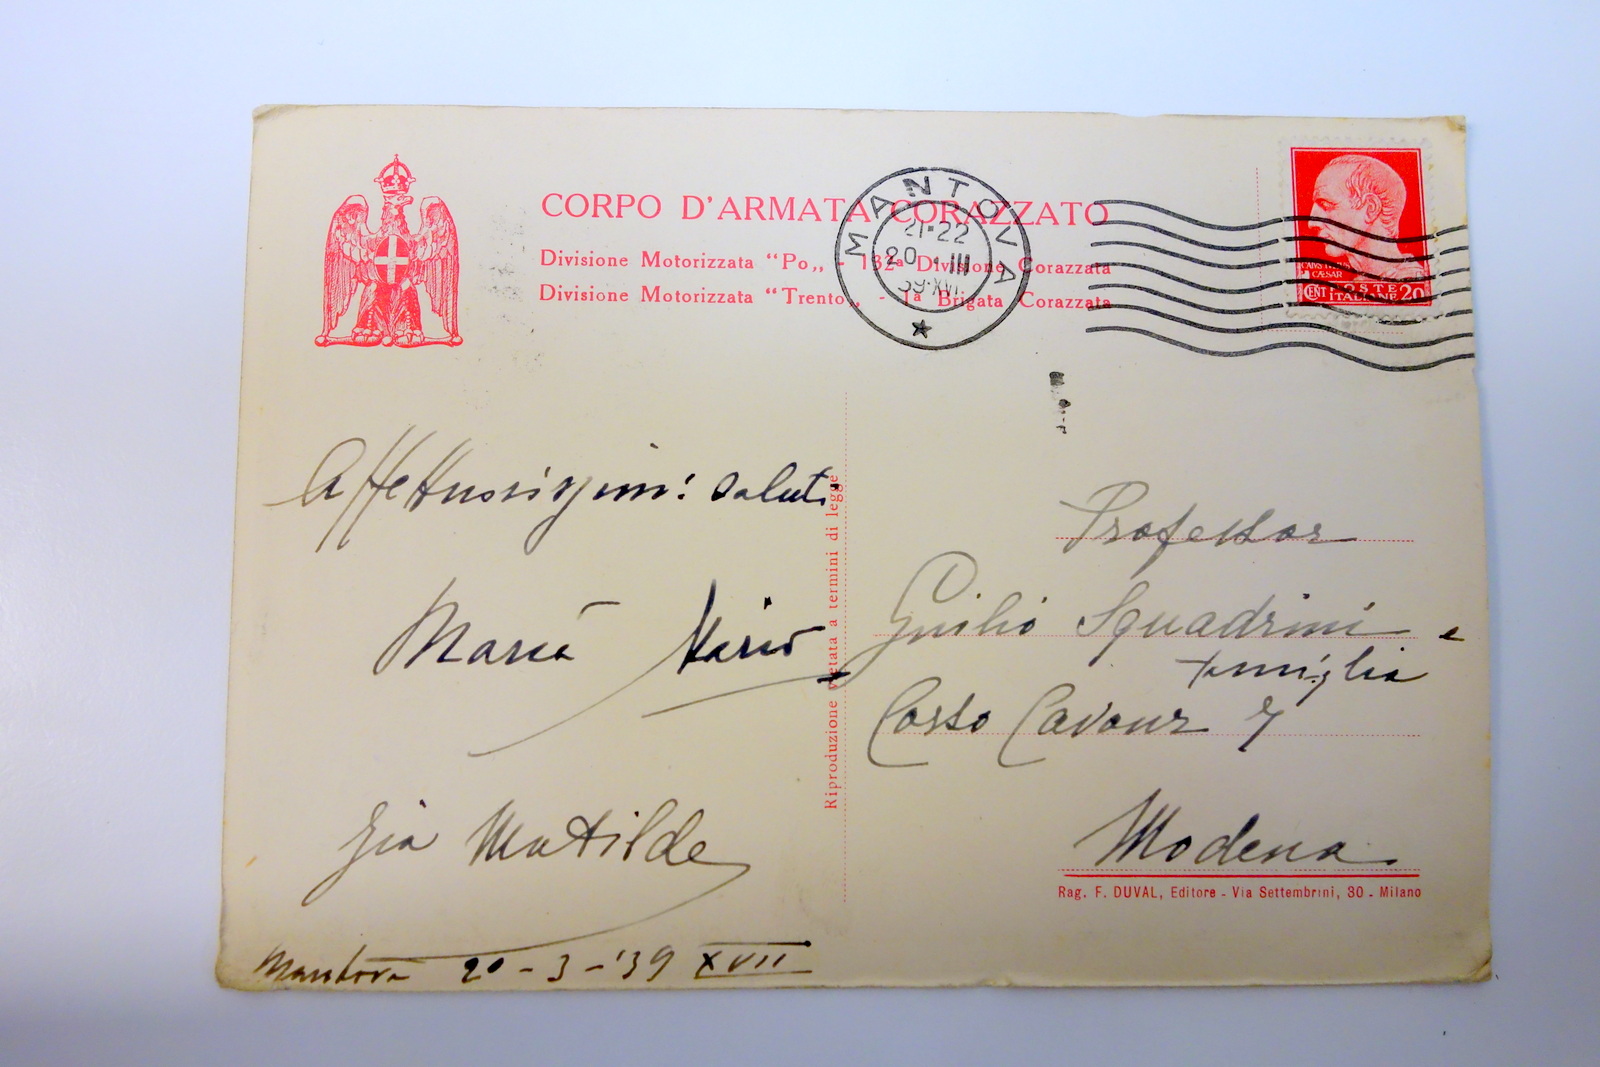 CORPO D'ARMATA CORAZZATO
Divisione Motorizzata "Po„ - 132ª Divisione Corazzata
Divisione Motorizzata "Trento„ - 1ª Brigata Corazzata
MANTOVA
21-22
20 · III
39·XVII
CAESAR
CENT POSTE ITALIANE 20
Affettuosissimi saluti
Maria Mario
Zia Matilde
Mantova 20-3-'39 XVII
Riproduzione vietata a termini di legge
Professor
Giulio Squadrini e
famiglia
Corso Cavour 7
Modena
Rag. F. DUVAL, Editore - Via Settembrini, 30 - Milano